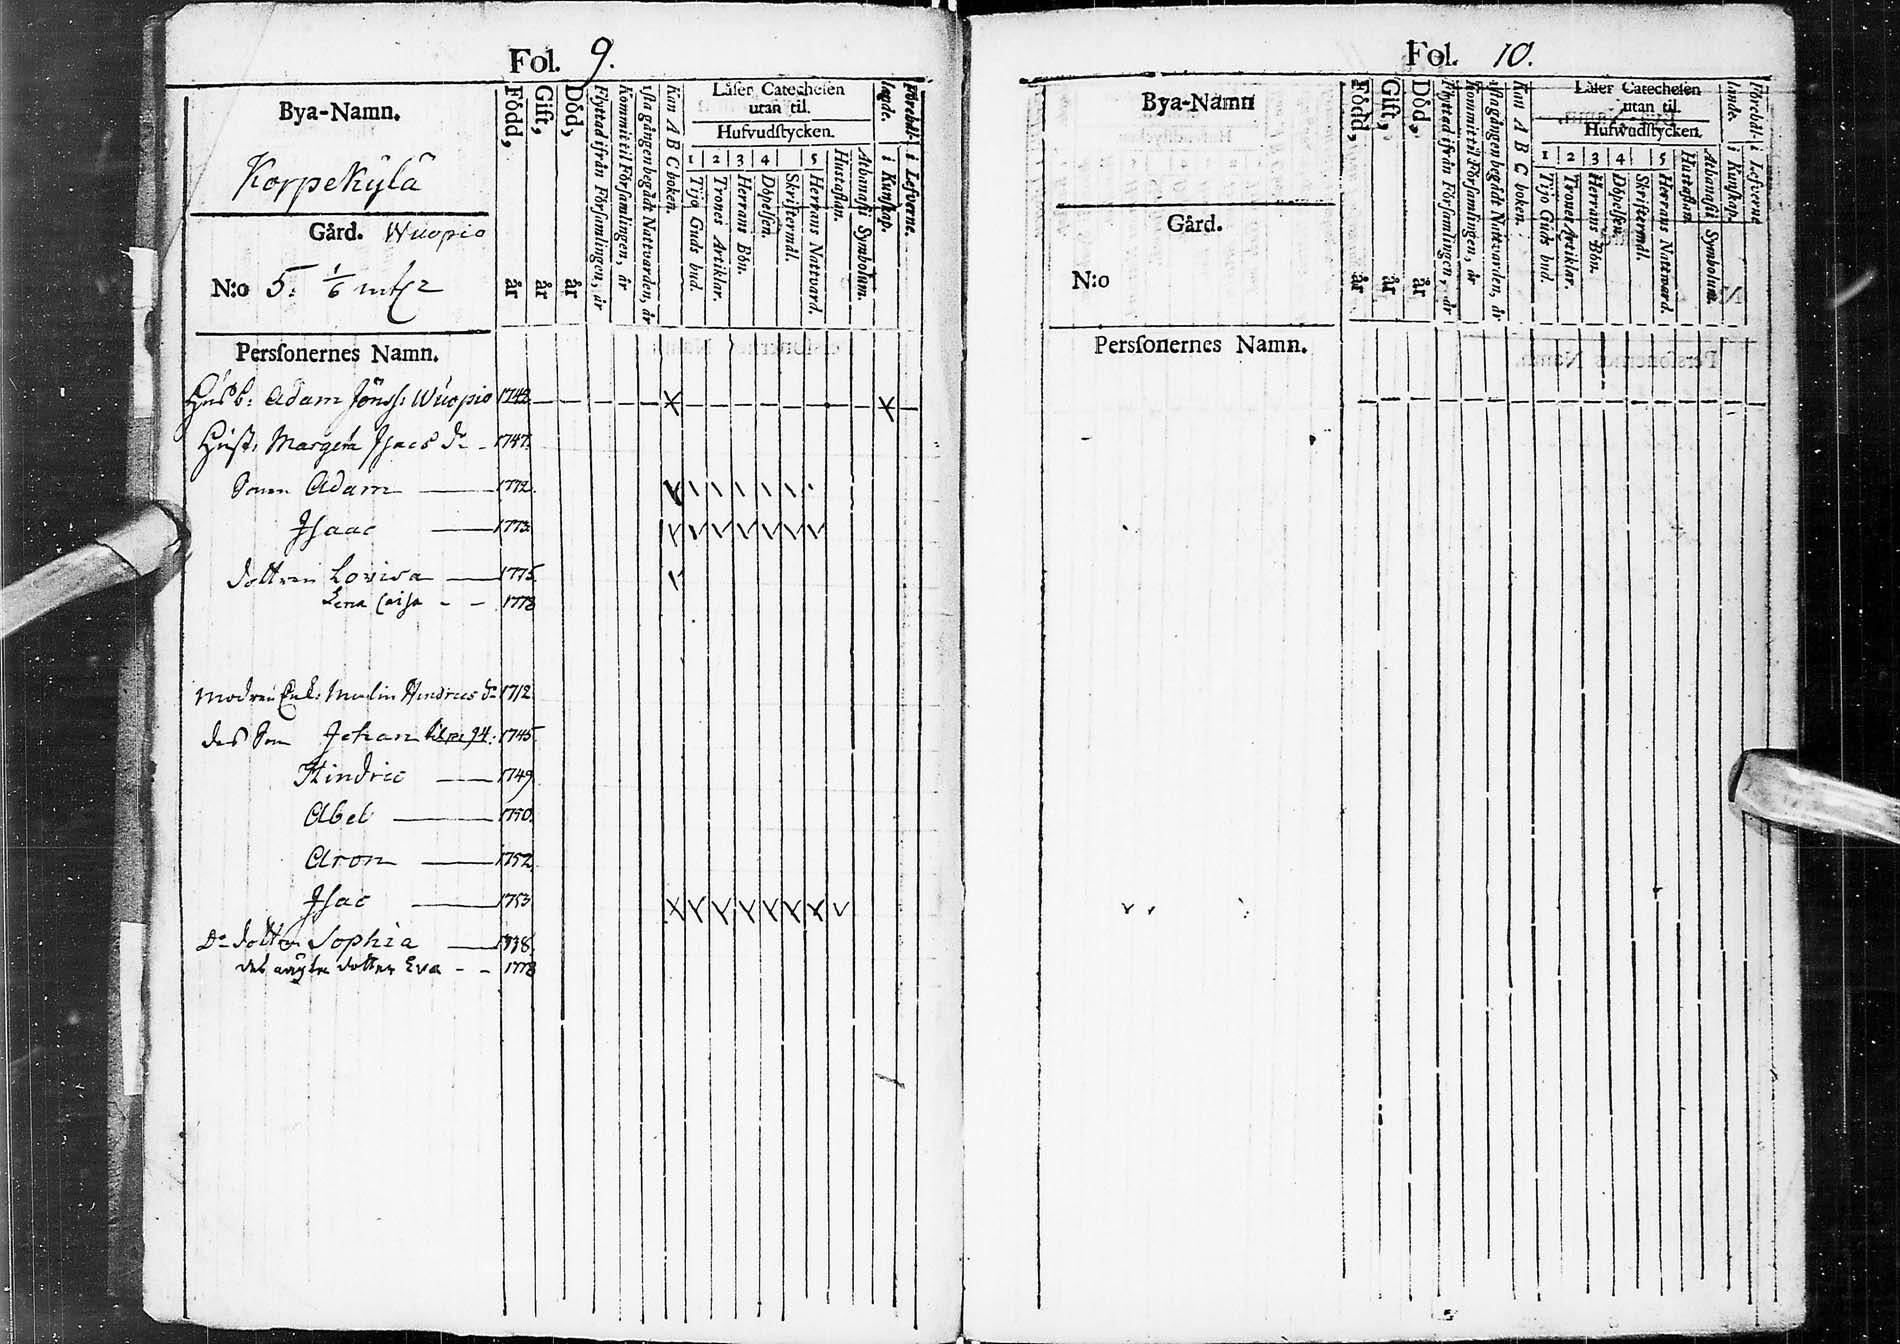 Fol. 9.
Bya-Namn.
Korpekylä
Gård. Wuopio
N:o 5. 1/6 mtl
Född, år
Gift, år
Död, år
Flyttad ifrån Församlingen, år
Kommit til Församlingen, år
1sta gången begådt Nattvarden, år
Kan A B C boken.
Läser Catechesen
utan til.
Hufvudstycken.
1 2 3 4 5
Tijo Guds bud.
Trones Artiklar.
Herrans Bön.
Döpelsen.
Skriftermål.
Herrans Nattvard.
Hustaflan.
Athanasii Symbolum.
lande. i Kunskap.
Förehål- i Lefverne.
Personernes Namn.
Husb: Adam Jönss: Wuopio 1743
Hust: Margeta Isacs dr 1747.
Sonen Adam 1772.
Isaac 1773.
dottren Lovisa 1775.
Lena Caisa - - 1778
Modren Enk: Malin Hindrics dr 1712.
des Son Johan 1745.
Hindric 1749
Abel 1750.
Aron 1752
Isac 1753
Do dottren Sophia 1738.
des oägta dotter Eva - - 1778
Fol. 10.
Bya-Namn
Gård.
N:o
Född, år
Gift, år
Död, år
Flyttad ifrån Församlingen, år
Kommit til Församlingen, år
1sta gången begådt Nattvarden, år
Kan A B C boken.
Läser Catechesen
utan til.
Hufwudstycken.
1 2 3 4 5
Tijo Guds bud.
Trones Artiklar.
Herrans Bön.
Döpelsen.
Skriftermål.
Herrans Nattvard.
Hustaflan
Athanasii Symbolum.
lande. i Kunskap.
Förehål- i Lefverne
Personernes Namn.